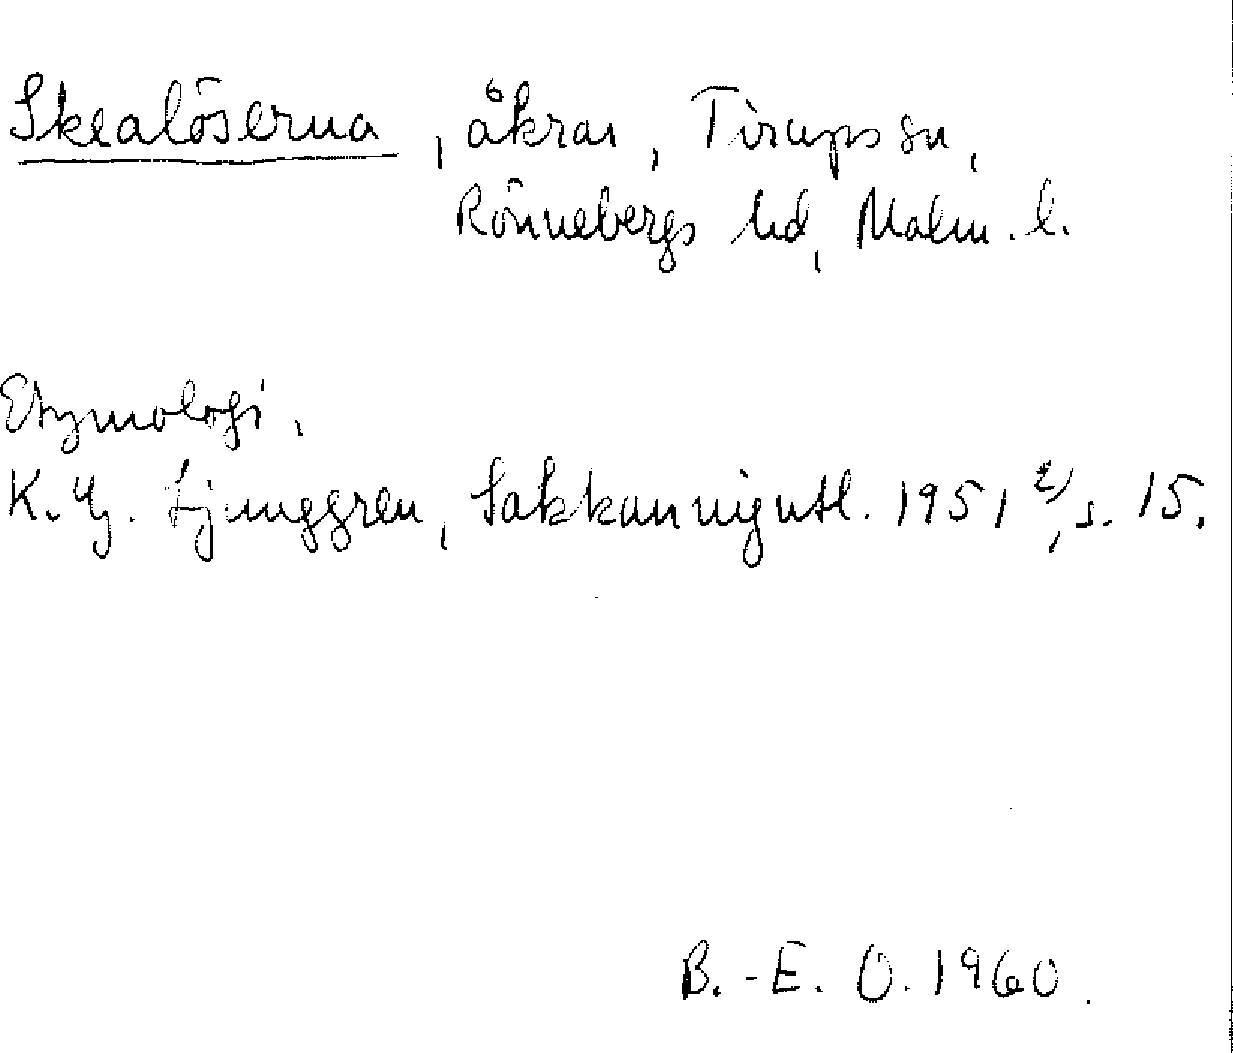 Skealöserna, åkrar, Tirups sn,
Rönnebergs hd, Malm. l.
Etymologi,
K. G. Ljunggren, Sakkunnigutl. 1951 2), s. 15.
B.-E. O. 1960.